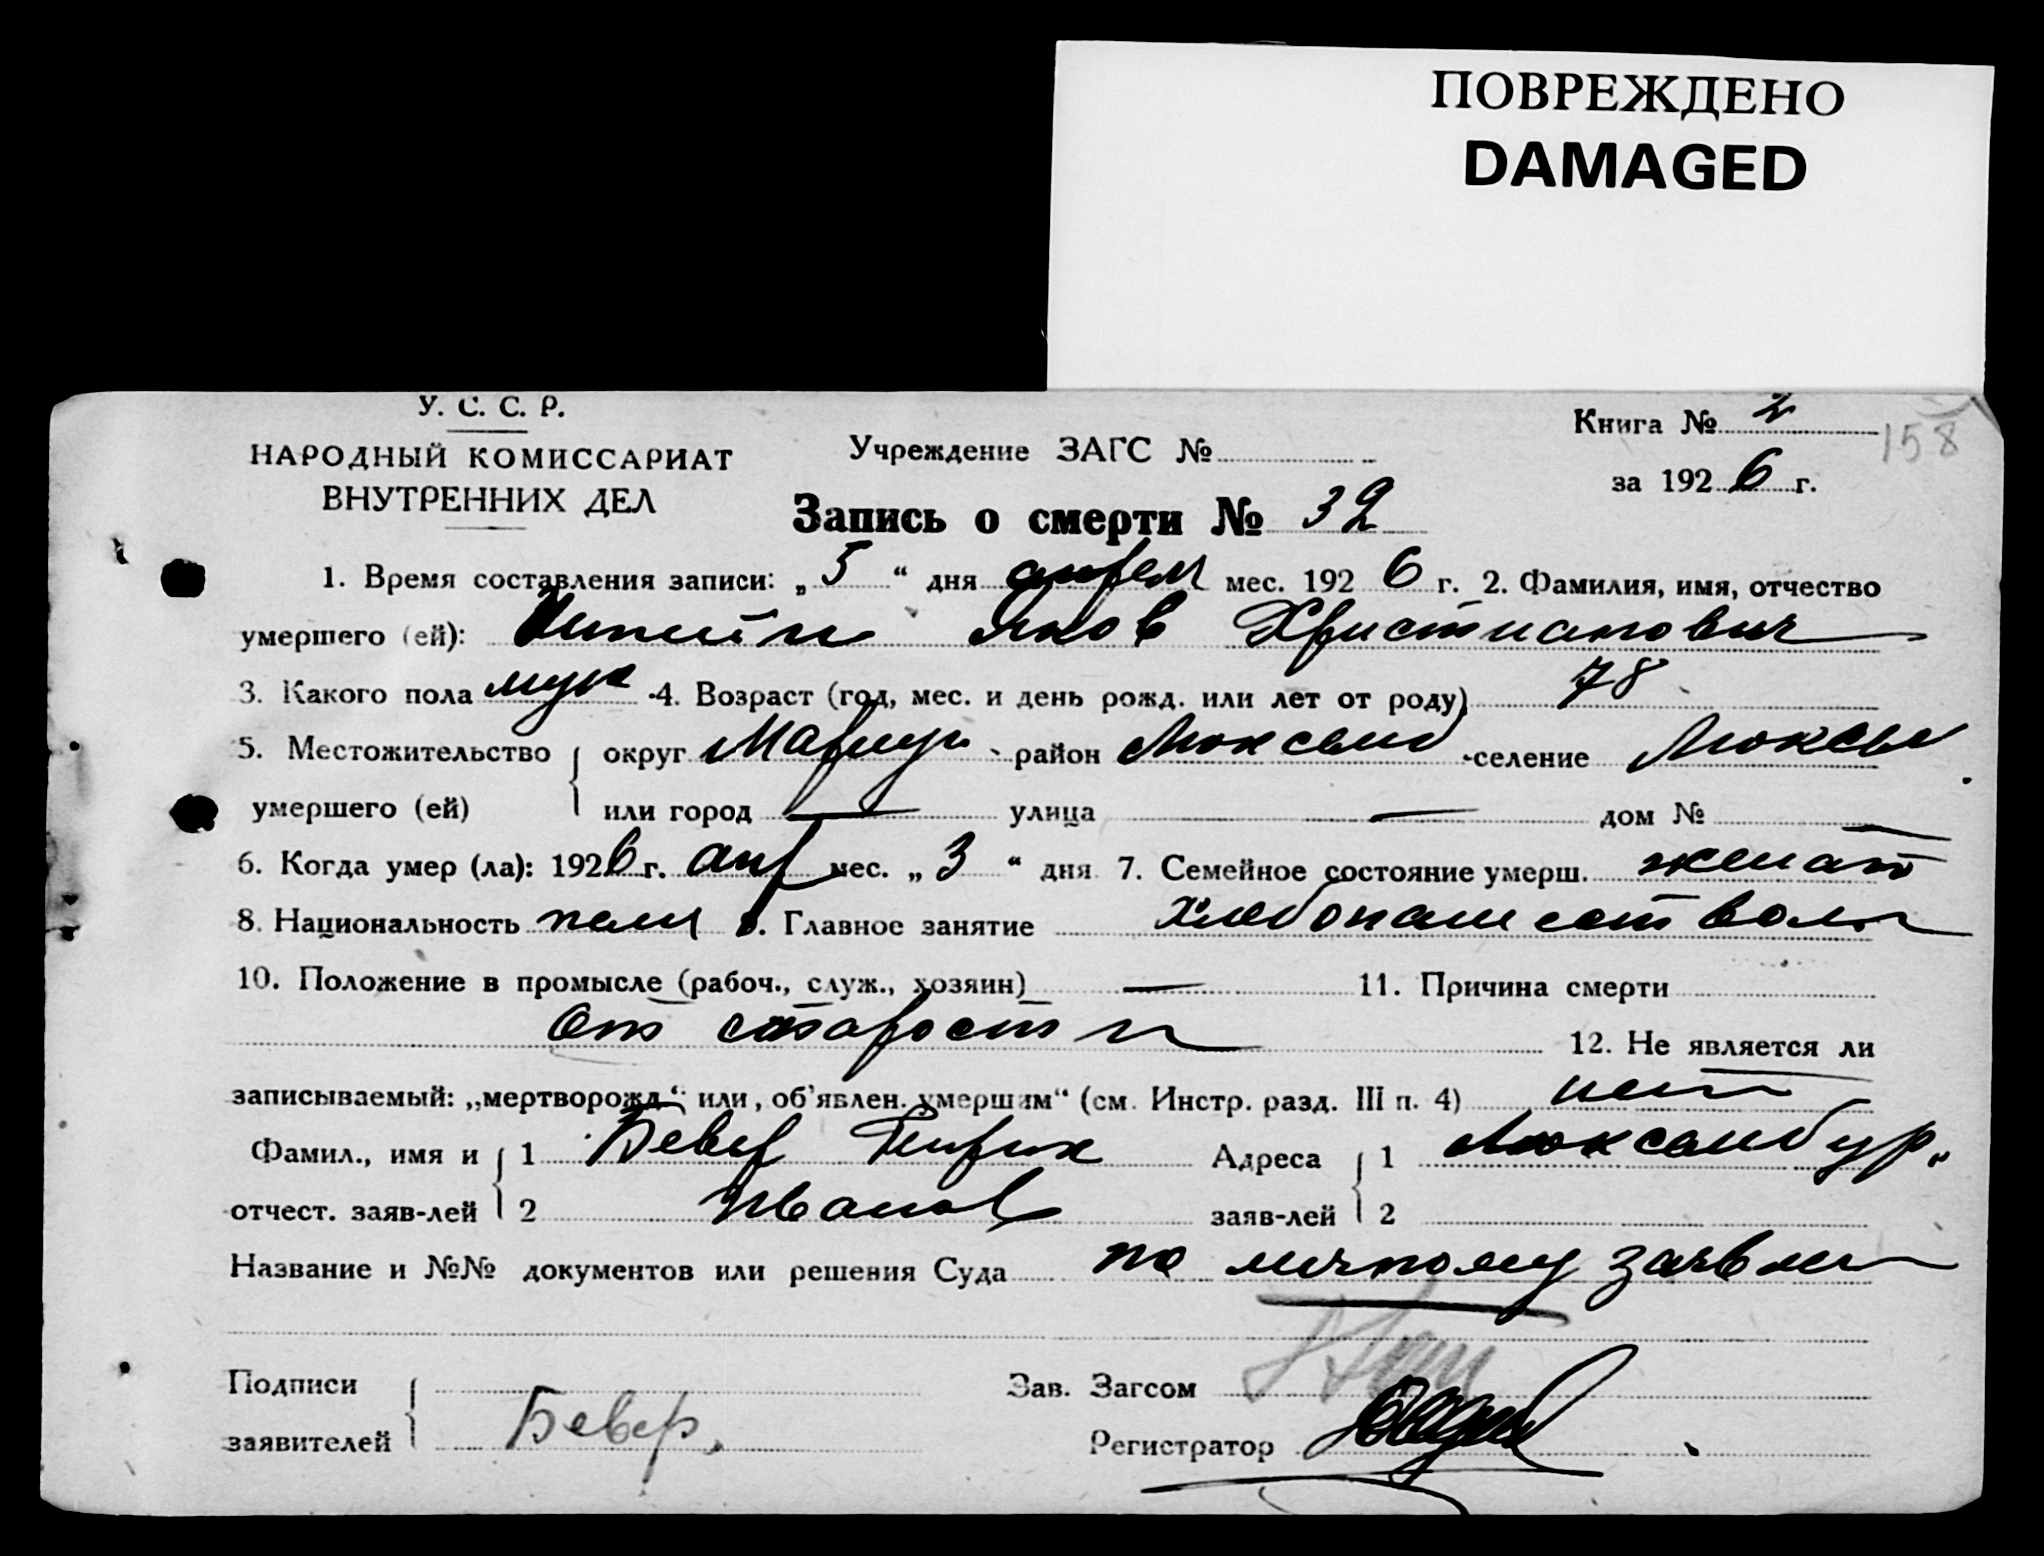 ПОВРЕЖДЕНО
DAMAGED
У. С. С. Р.
НАРОДНЫЙ КОМИССАРИАТ
ВНУТРЕННИХ ДЕЛ
Учреждение ЗАГС №
Книга № 2
158
за 1926 г.
Запись о смерти № 32
1. Время составления записи: „5“ дня апрел мес. 1926 г. 2. Фамилия, имя, отчество
умершего (ей): Яков Христианович
3. Какого пола муж 4. Возраст (год, мес. и день рожд. или лет от роду) 78
5. Местожительство умершего (ей) округ Мариуп район Люксемб селение Люксем
или город — улица — дом № —
6. Когда умер (ла): 1926 г. апр мес. „3“ дня 7. Семейное состояние умерш. женат
8. Национальность немец 9. Главное занятие хлебопашеством
10. Положение в промысле (рабоч., служ., хозяин) — 11. Причина смерти
От старости 12. Не является ли
записываемый: „мертворожд“ или „об'явлен. умершим“ (см. Инстр. разд. III п. 4) нет
Фамил., имя и отчест. заяв-лей 1 Бевер Генрих Адреса заяв-лей 1 Люксембург
2 Иванов 2
Название и №№ документов или решения Суда по личному заявлен
Подписи заявителей Бевер. Зав. Загсом
Регистратор